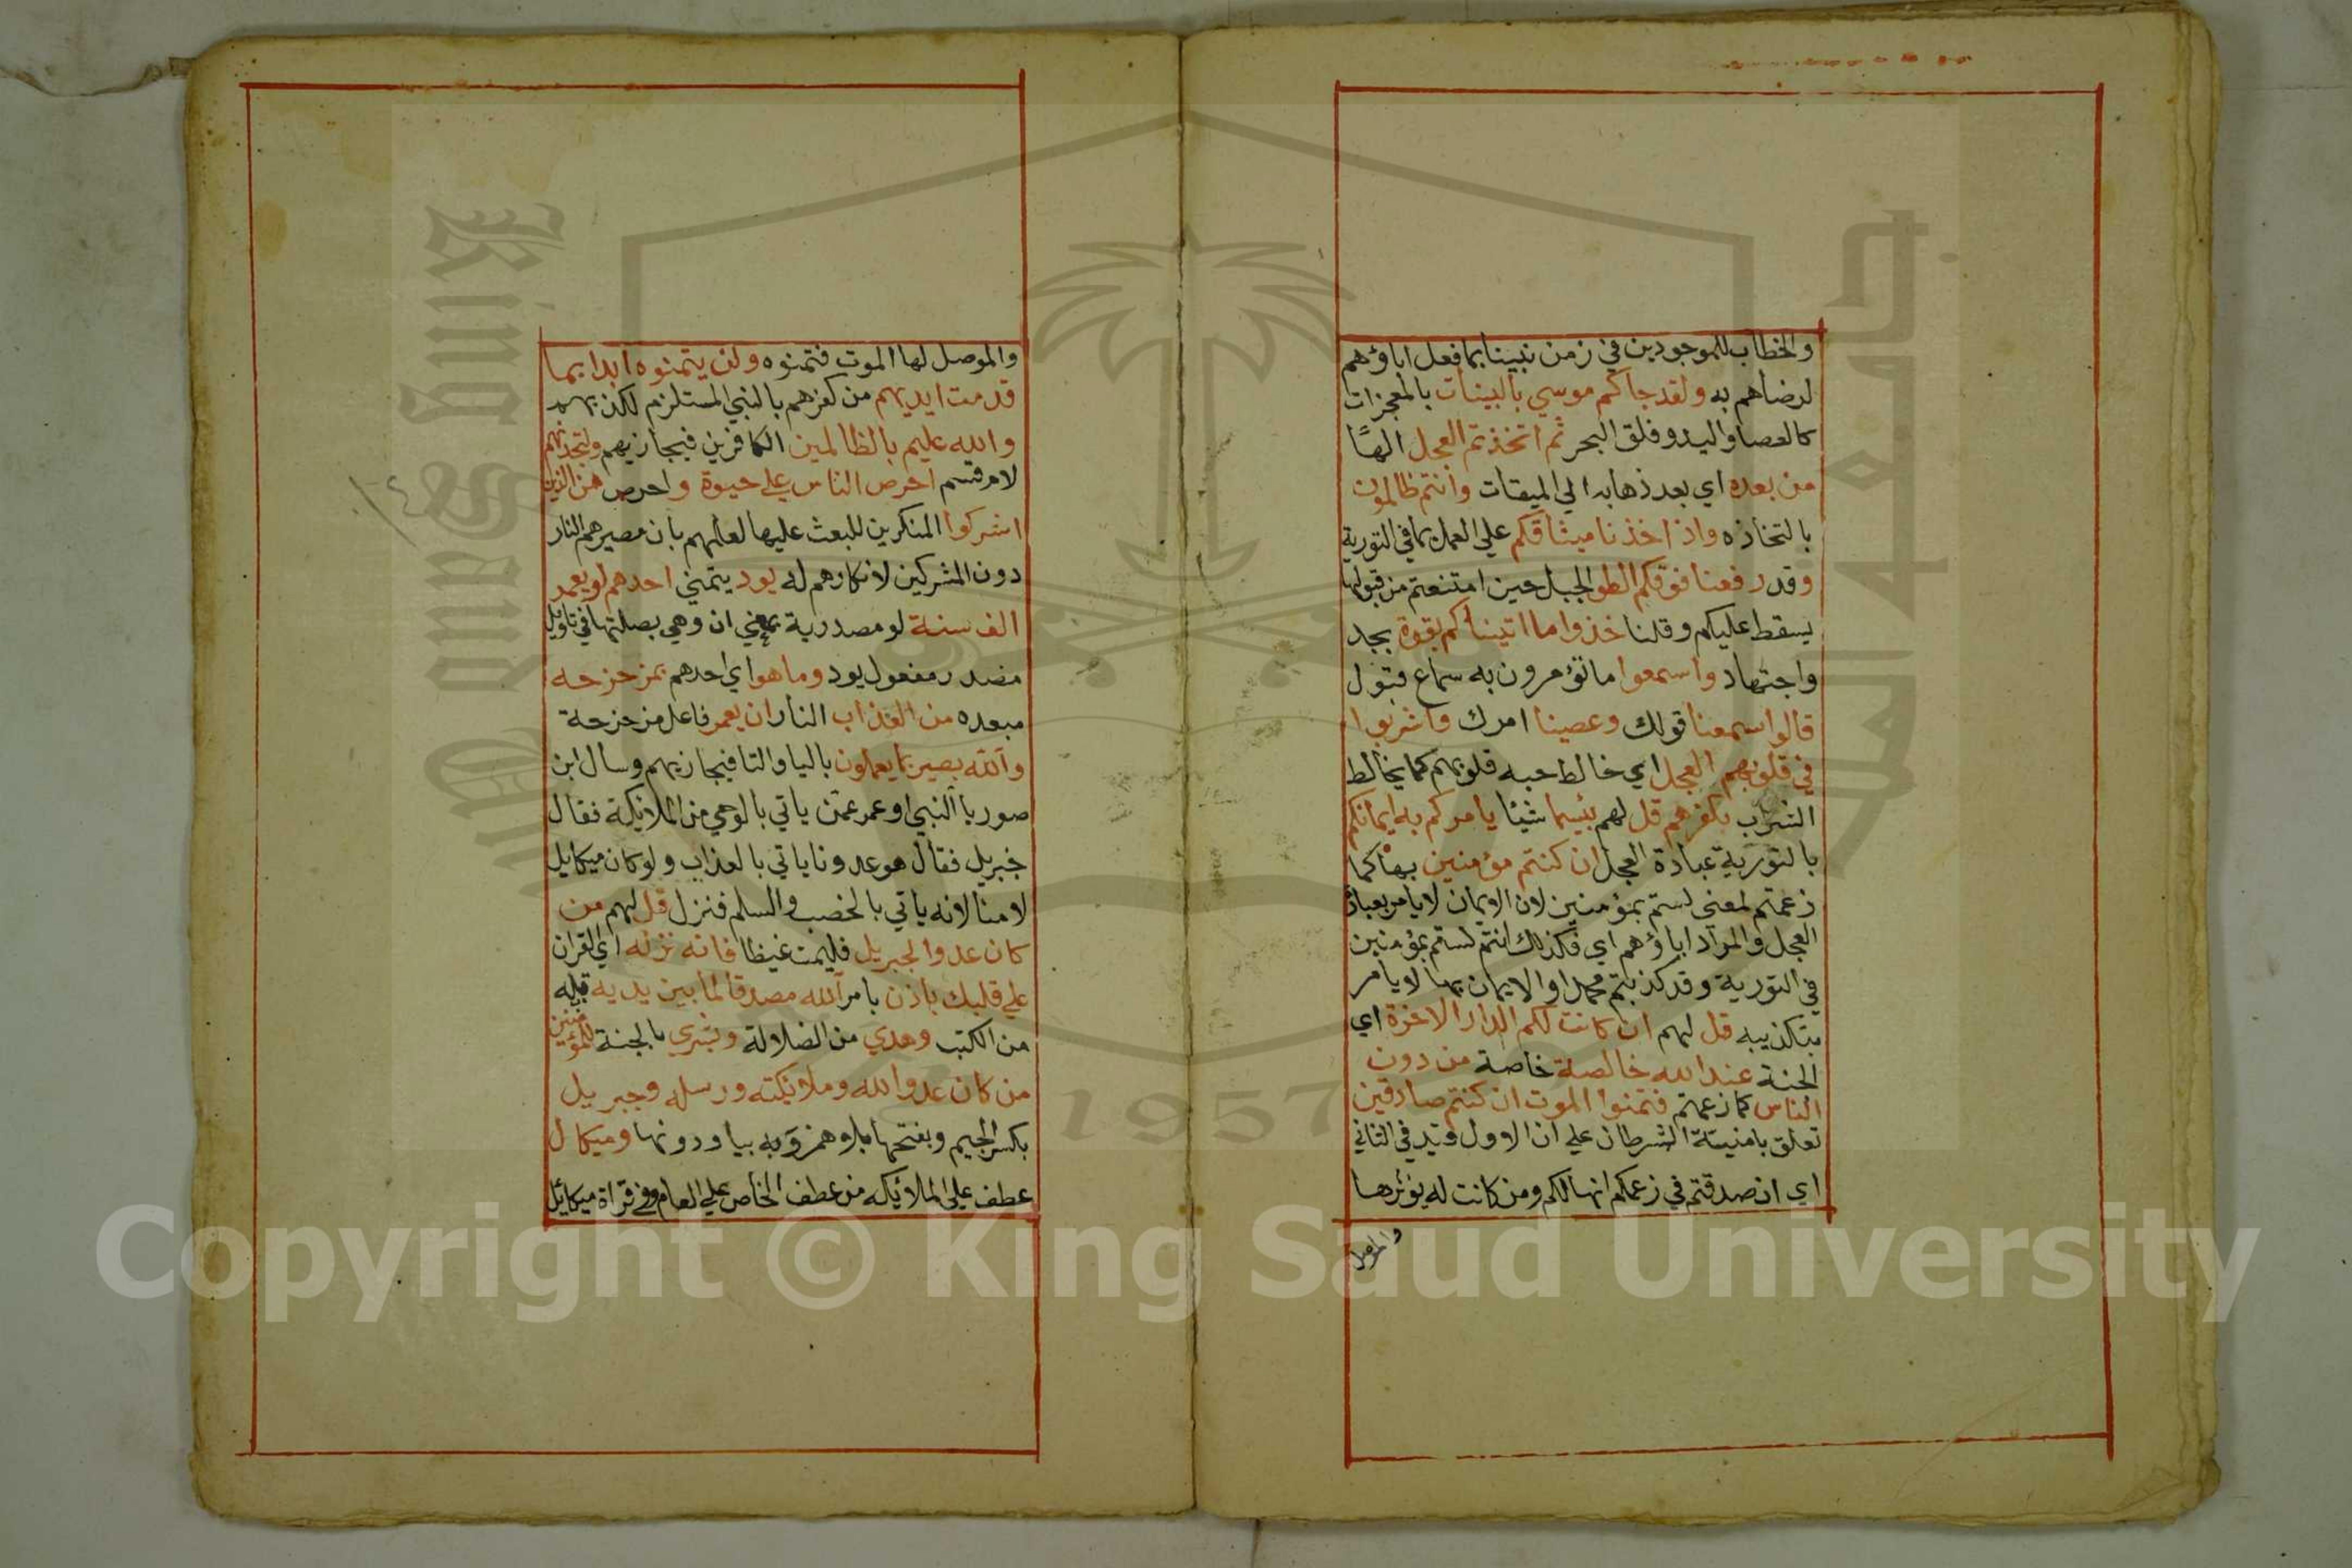 والخطاب للموجودين في زمن نبينا بما فعل اباؤهم
لرضاهم به ولقد جاكم موسي بالبينات بالمعجزات
كالعصا واليد وفلق البحر ثم اتخذتم العجل الهًا
من بعده اي بعد ذهابه الي الميقات وانتم ظالمون
باتخاذه واذ اخذنا ميثاقكم علي العمل بما في التورية
وقد رفعنا فوقكم الطور الجبل حين امتنعتم من قبولها
يسقط عليكم وقلنا خذوا ما اتيناكم بقوة بجد
واجتهاد واسمعوا ما تؤمرون به سماع قبول
قالوا سمعنا قولك وعصينا امرك واشربوا
في قلوبهم العجل اي خالط حبه قلوبهم كما يخالط
الشراب بكفرهم قل لهم بئسما شيئا يامركم به ايمانكم
بالتورية عبادة العجل ان كنتم مؤمنين بها كما
زعمتم لمعني لستم بمؤمنين لان الايمان لا يامر بعبادة
العجل والمراد اباؤهم اي فكذلك انتم لستم بمؤمنين
في التورية وقد كذبتم محمدا والايمان بها لا يامر
بتكذيبه قل لهم ان كانت لكم الدار الاخرة اي
الجنة عند الله خالصة خاصة من دون
الناس كما زعمتم فتمنوا الموت ان كنتم صادقين
تعلق بامنيتة الشرطان علي ان الاول قيد في الثاني
اي ان صدقتم في زعمكم انها لكم ومن كانت له يؤثرها
والموصل
والموصل لها الموت فتمنوه ولن يتمنوه ابدا بما
قدمت ايديهم من كفرهم بالنبي المستلزم لكذبهم
والله عليم بالظالمين الكافرين فيجازيهم ولتجدنهم
لام قسم احرص الناس علي حيوة واحرص من الذين
اشركوا المنكرين للبعث عليها لعلمهم بان مصيرهم النار
دون المشركين لانكارهم له يود يتمني احدهم لو يعمر
الف سنة لو مصدرية بمعني ان وهي بصلتها في تاويل
مصدر مفعول يود وما هو اي احدهم بمزحزحه
مبعده من العذاب النار ان يعمر فاعل مزحزحة
والله بصير بما يعملون باليا والتا فيجازيهم وسال ابن
صوريا النبي او عمر عمن ياتي بالوحي من الملائكة فقال
جبريل فقال هو عدونا ياتي بالعذاب ولو كان ميكايل
لامنا لانه ياتي بالخصب والسلم فنزل قل لهم من
كان عدوا لجبريل فليمت غيظا فانه نزله اي القران
علي قلبك باذن بامر الله مصدقا لما بين يديه قبله
من الكتب وهدي من الضلالة وبشري بالجنة للمؤمنين
من كان عدوا لله وملائكته ورسله وجبريل
بكسر الجيم وبفتحها بلا همز وبه بيا ودونها وميكال
عطف علي الملائكه من عطف الخاص علي العام وفي قراة ميكائيل
1957
King Saud University
Copyright © King Saud University